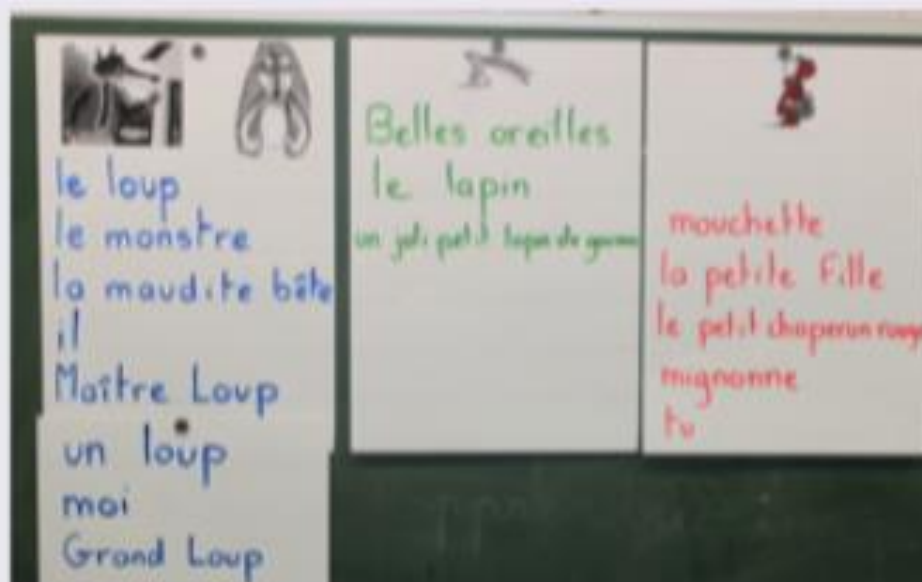 le loup
le monstre
la maudite bête
il
Maître Loup
un loup
moi
Grand Loup
Belles oreilles
le lapin
un joli petit lapin de garenne
mouchette
la petite fille
le petit chaperon rouge
mignonne
tu